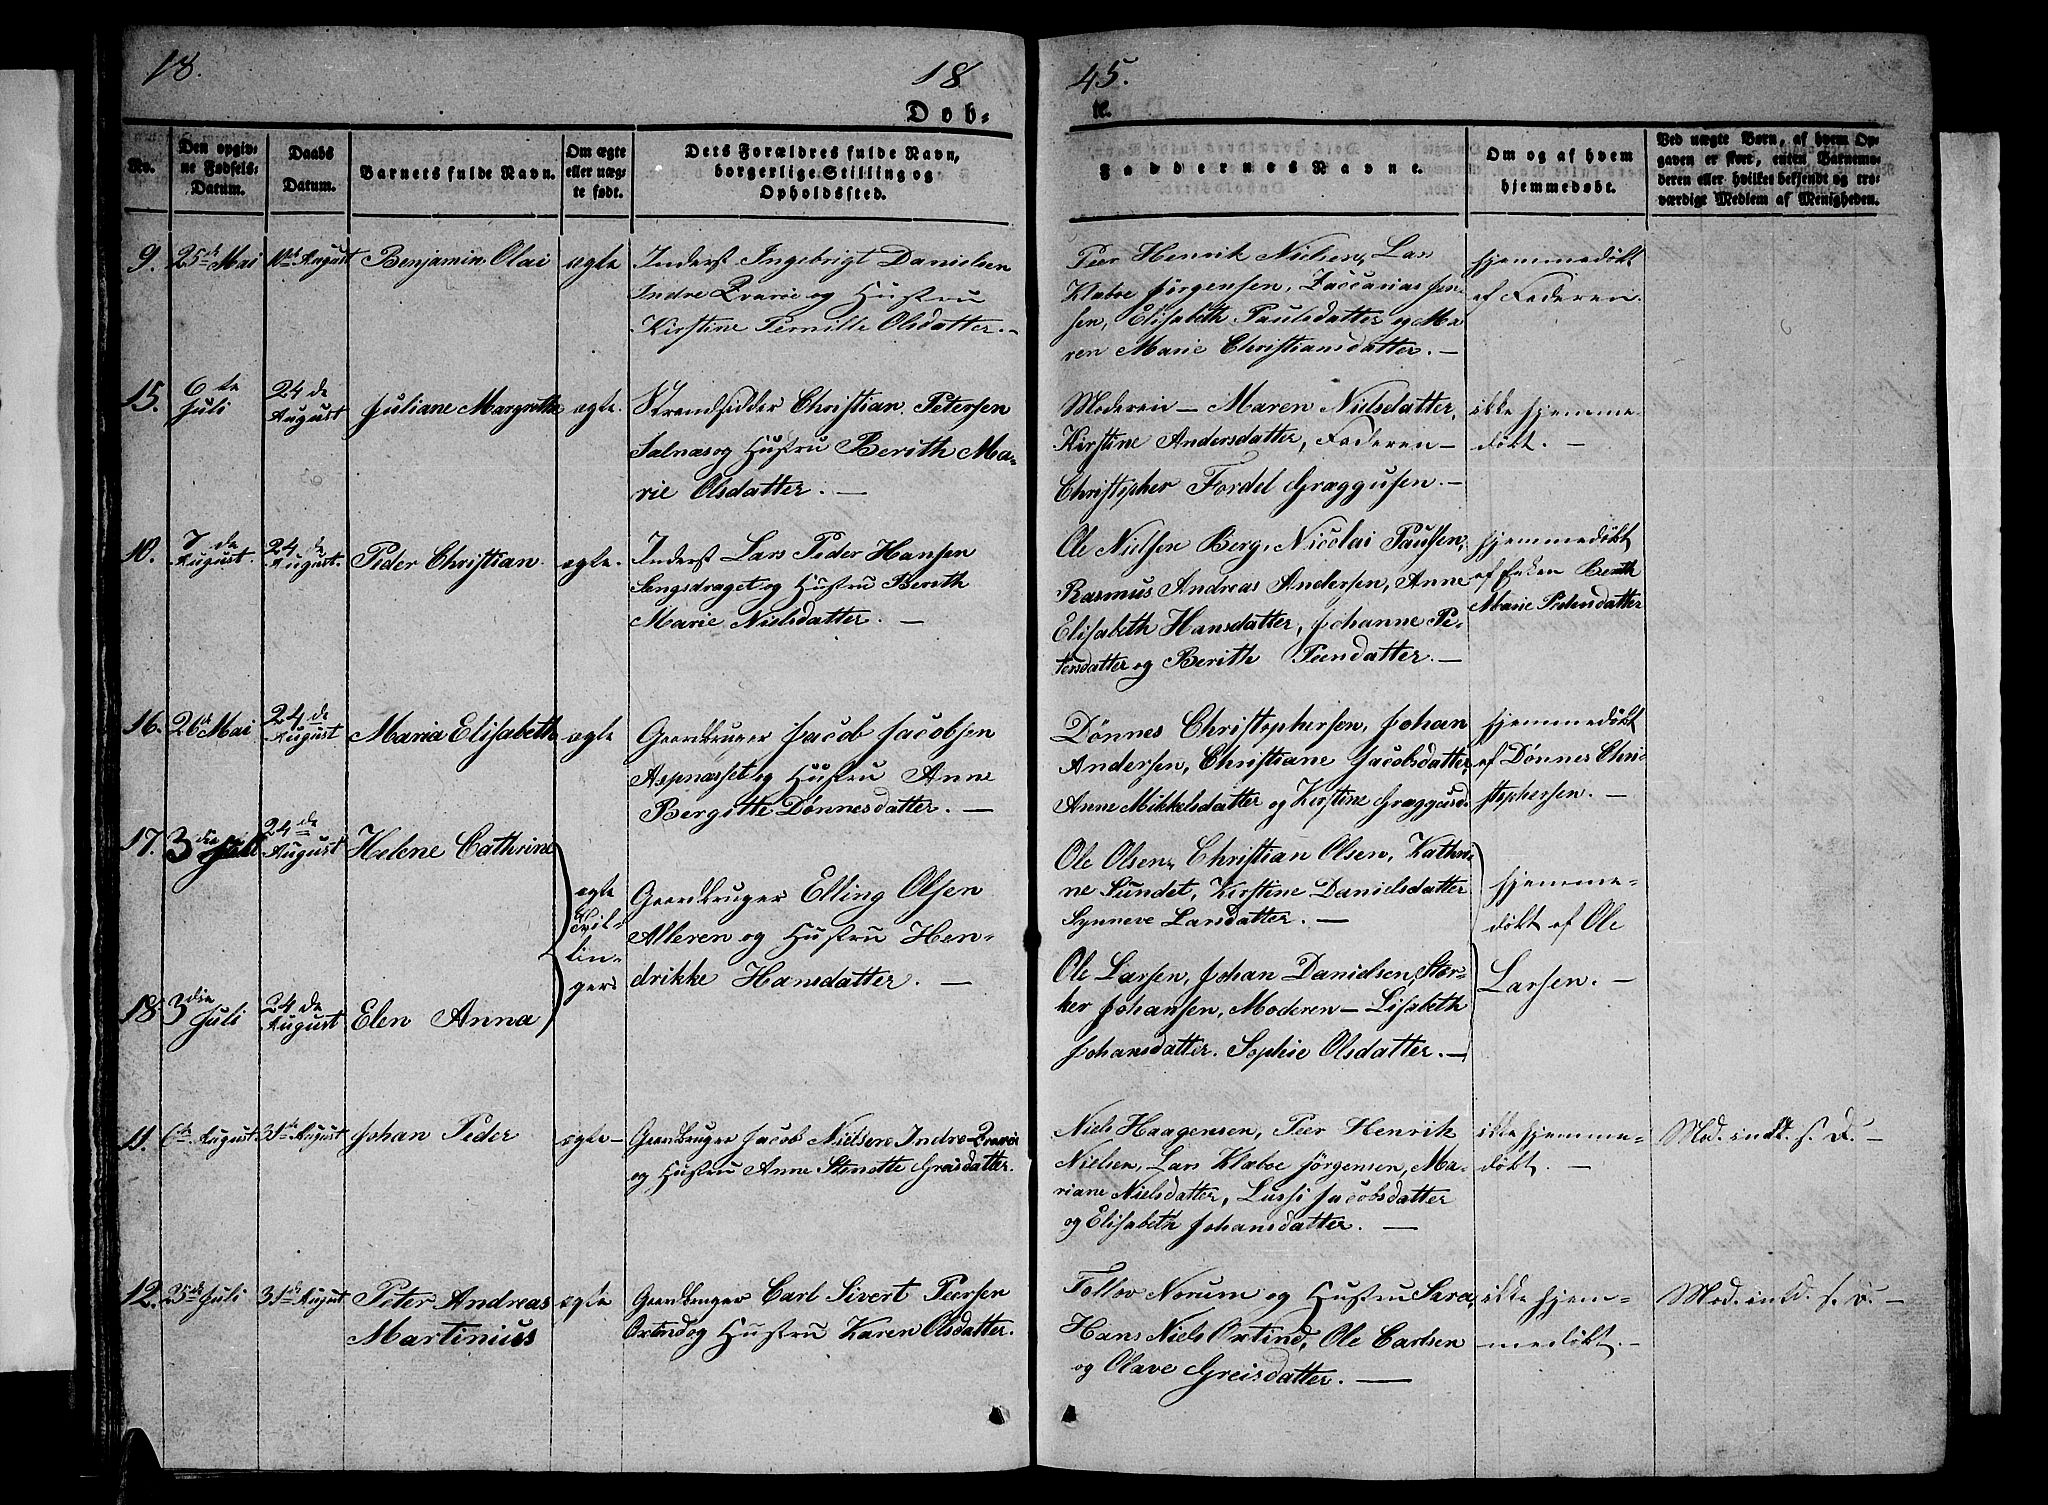 18.
18
45.
Døb-
te.
No.
Den opgiv-
ne Fødsels-
Datum.
Daabs
Datum.
Barnets fulde Navn.
Om ægte
eller uæg-
te født.
Dets Forældres fulde Navn,
borgerlige Stilling og
Opholdssted.
Faddernes Navne.
Om og af hvem
hjemmedøbt.
Ved uægte Børn, af hvem Op-
gaven er skeet, enten Barnemo-
deren eller hvilket bekjendt og tro-
værdigt Medlem af Menigheden.
9.
25de Mai
10de August
Benjamin Olai
ægte
Inderst Ingebrigt Danielsen
Indre Qvarøe og Hustru
Kirstine Pernille Olsdatter. —
Peer Henrik Nielsen, Lars
Klæboe Jørgensen, Zaccarias Jen-
sen, Elisabeth Paulsdatter og Ma-
ren Marie Christiansdatter. —
hjemmedøbt
af Faderen.
15.
6te
Juli
24de
August
Juliane Margrethe
ægte.
Strandsidder Christian Petersen
Salnæs og Hustru Berith Ma-
rie Olsdatter. —
Moderen — Maren Nielsdatter,
Kirstine Andersdatter, Faderen —
Christopher Fordel Græggusen. —
ikke hjemme-
døbt. —
10.
7de
August
24de
August.
Peder Christian
ægte.
Inderst Lars Peder Hansen
Langsdraget og Hustru Berith
Marie Nielsdatter. —
Ole Nielsen Berg, Nicolai Paulsen,
Rasmus Andreas Andersen, Anne
Elisabeth Hansdatter, Johanne Pe-
tersdatter og Berith Peersdatter. —
hjemmedøbt
af Enken Berith
Marie Pedersdatter
16.
26de Mai
24de
August
Maria Elisabeth
ægte
Gaardbruger Jacob Jacobsen
Aspnæsset og Hustru Anne
Bergitte Dønnesdatter. —
Dønnes Christophersen, Johan
Andersen, Christiane Jacobsdatter,
Anne Mikkelsdatter og Kirstine Græggusd.
hjemmedøbt
af Dønnes Chri-
stophersen. —
17.
3die Juli
24de
August
Helene Cathrine
ægte
Tvil-
lin-
gers
Gaardbruger Elling Olsen
Alteren og Hustru Hen-
drikke Hansdatter. —
Ole Olsen, Christian Olsen, Kathri-
ne Sundet, Kirstine Danielsdatter
Synneve Larsdatter. —
hjemme-
døbt af Ole
Larsen. —
18.
3die
Juli
24de
August
Elen Anna
Ole Larsen, Johan Danielsen, Stor-
ker Johansen, Moderen — Lisabeth
Johansdatter. Sophie Olsdatter. —
11.
6te August
31te August
Johan Peder
ægte —
Gaardbruger Jacob Nielsen Indre-Qvarøe
og Hustru Anne Stenette Greisdatter.
Niels Haagensen, Peer Henrik
Nielsen, Lars Klæboe Jørgensen, Ma-
riane Nielsdatter, Lussi Jacobsdatter
og Elisabeth Johansdatter. —
ikke hjemme-
døbt. —
Mod. indl. s. D. —
12.
25de Juli
31te August
Peter Andreas
Martinius
ægte
Gaardbruger Carl Sivert Peersen
Oxtind og Hustru Karen Olsdatter.
Follov Norum og Hustru Sara,
Hans Niels Oxtind, Ole Carlsen
og Olave Greisdatter. —
ikke hjem-
medøbt. —
Mod. intd. s. D. —